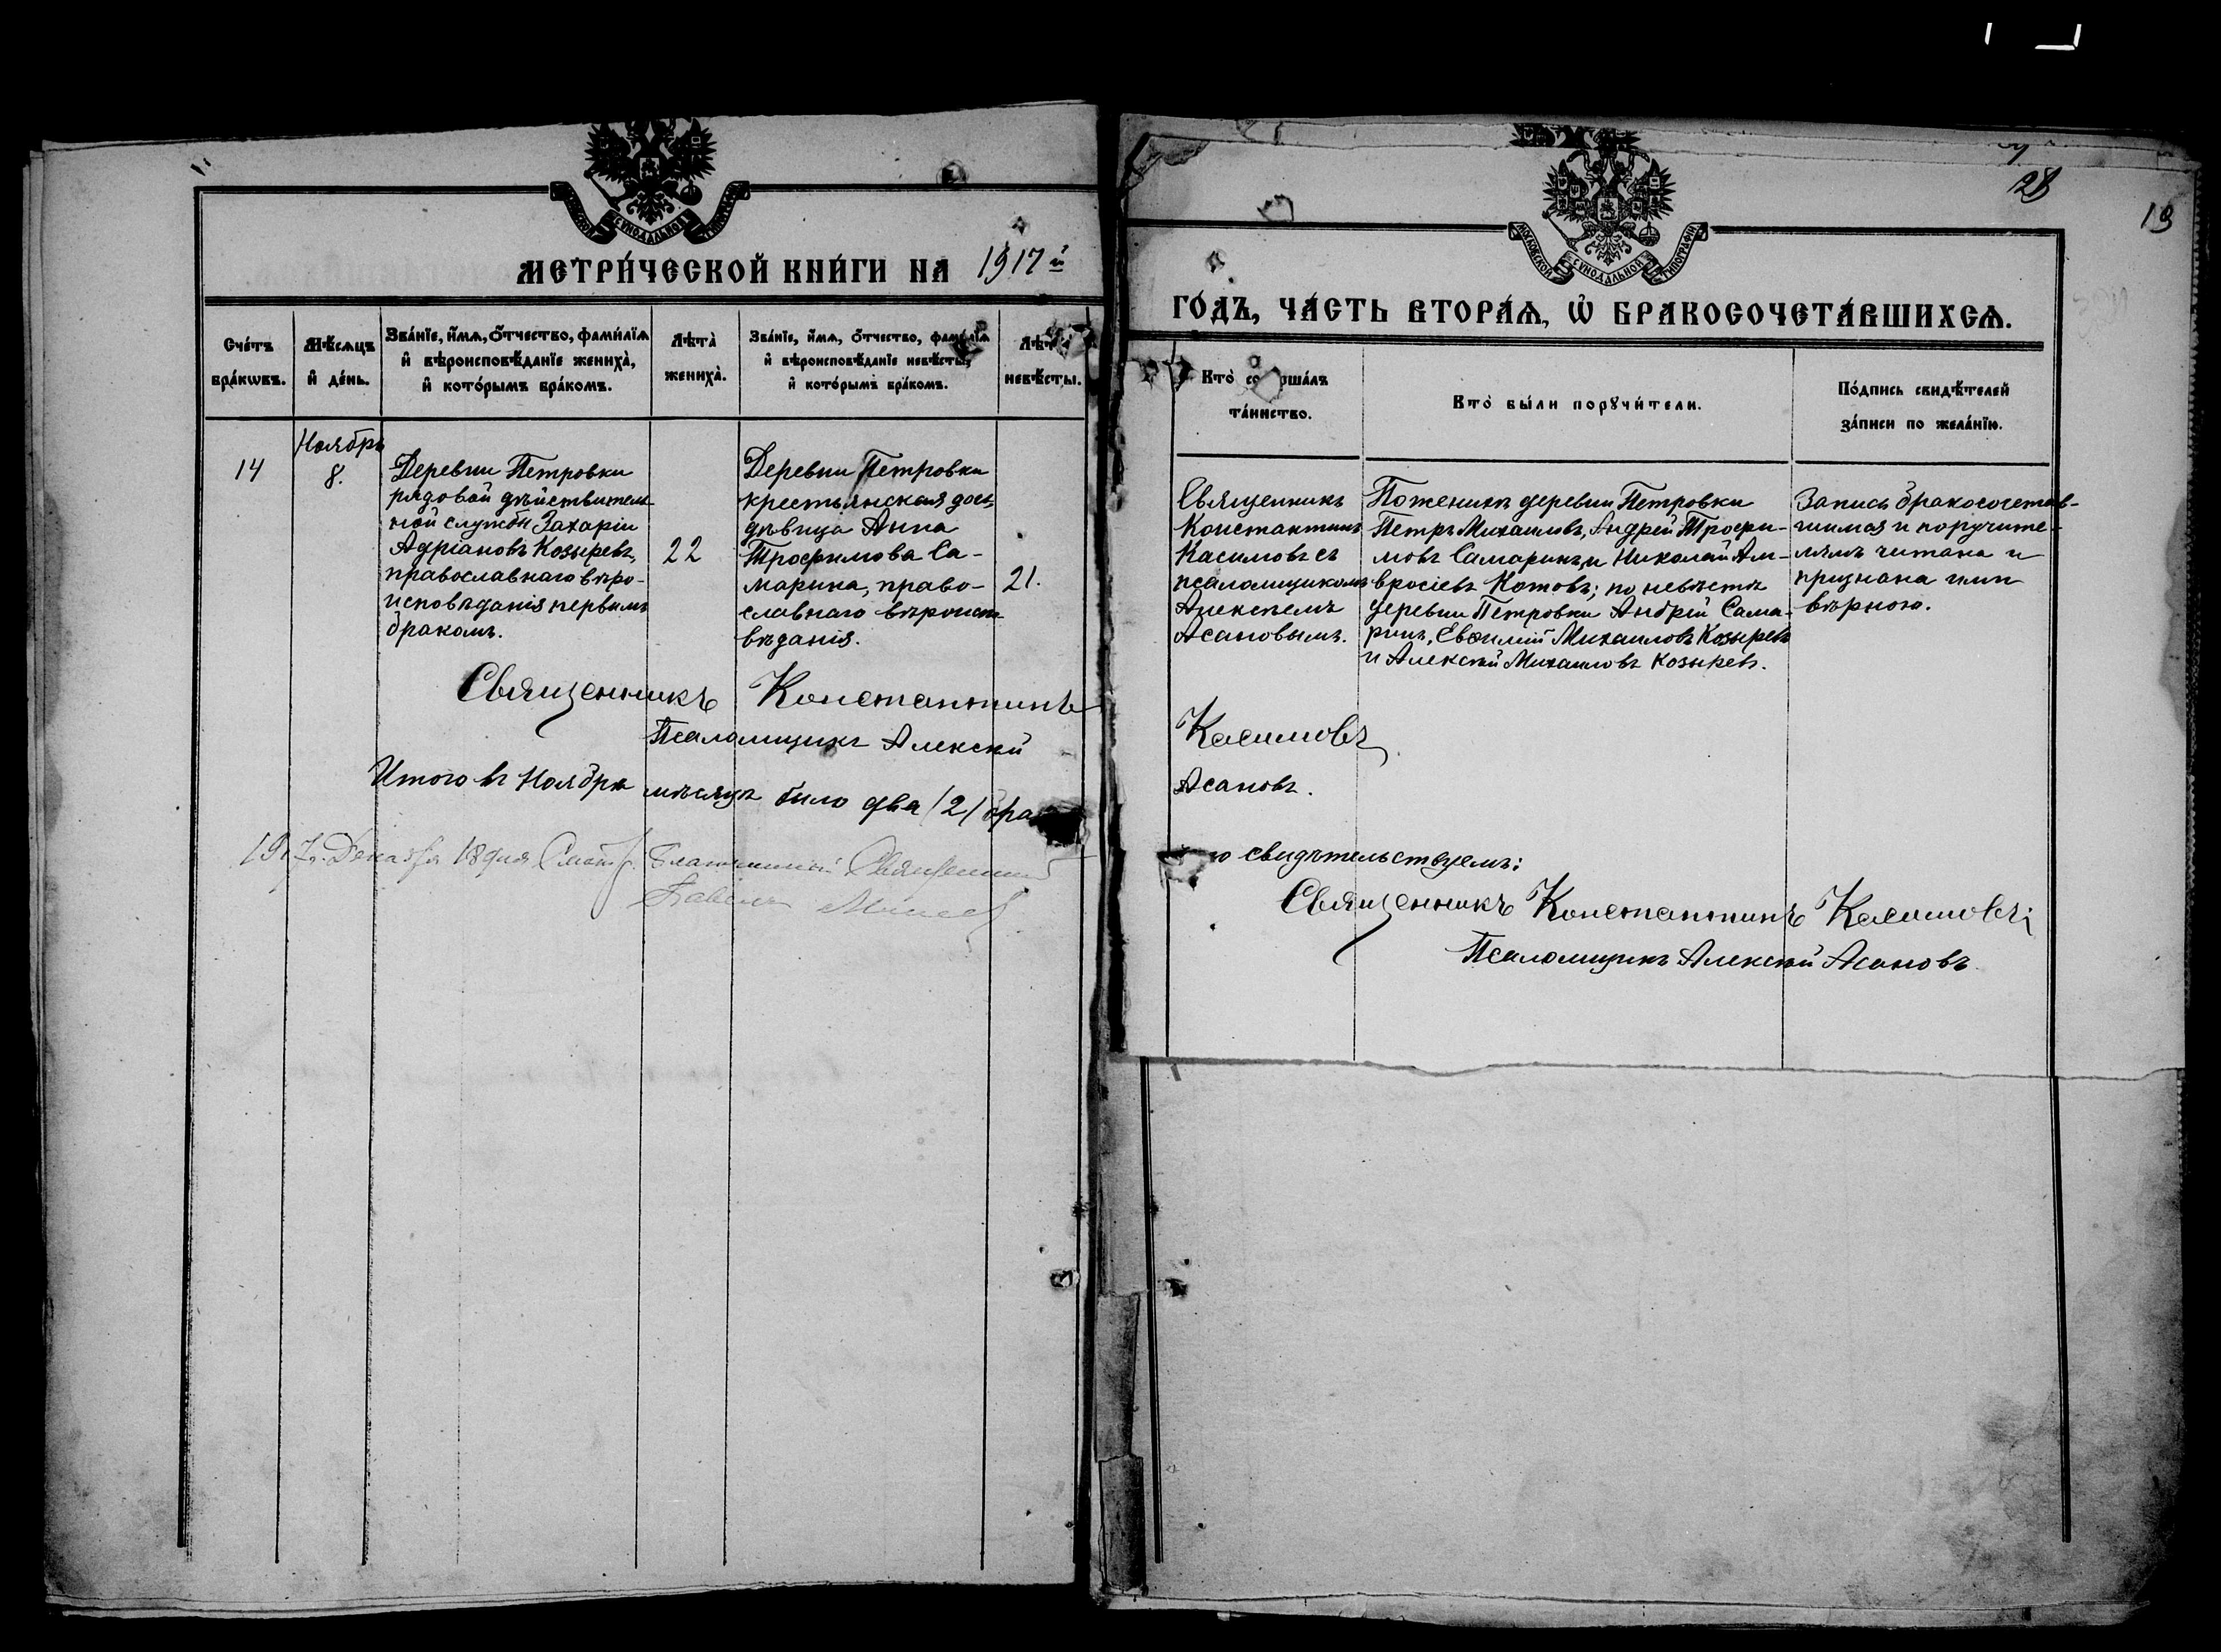 МОСКОВСКОЙ СѴНОДАЛЬНОЙ ТИПОГРАФІИ
МЕТРИ́ЧЕСКОЙ КНИ́ГИ НА 1917 й
Сче́тъ
бра́кѡвъ.
Мѣ́сѧцъ
и҆ де́нь.
Зва́нїе, и҆́мѧ, ѻ҆́тчество, фами́лїѧ
и҆ вѣроисповѣ́данїе жениха̀,
и҆ кото́рымъ бра́комъ.
Лѣта̀
жениха̀.
Зва́нїе, и҆́мѧ, ѻ҆́тчество, фами́лїѧ
и҆ вѣроисповѣ́данїе невѣ́сты,
и҆ кото́рымъ бра́комъ.
Лѣта̀
невѣ́сты.
14
Ноябрь
8.
Деревни Петровки
рядовой дѣйствитель
ной службы Захарій
Адріановъ Козыревъ,
православнаго вѣро-
исповѣданія первымъ
бракомъ.
22
Деревни Петровки
крестьянская дочь,
дѣвица Анна
Трофимова Са-
марина, право-
славнаго вѣроиспо-
вѣданія.
21.
Священникъ Константинъ
Псаломщикъ Алексѣй
Итого въ Ноябрѣ мѣсяцѣ было два /2/ бра
1917 г. Декабря 18 дня Благочинный Священникъ
Павелъ
28
19
МОСКОВСКОЙ СѴНОДАЛЬНОЙ ТИПОГРАФІИ
ГО́ДЪ, ЧА́СТЬ ВТОРА́Ѧ, Ѡ҆ БРАКОСОЧЕТА́ВШИХСѦ.
Кто̀ соверша́лъ
та́инство.
Кто̀ бы́ли порꙋчи́тели.
По́дпись свидѣ́телей
за́писи по жела́нїю.
Священникъ
Константинъ
Касимовъ съ
псаломщикомъ
Алексѣемъ
Асановымъ.
По женихѣ деревни Петровки
Петръ Михаиловъ, Андрей Трофи-
мовъ Самаринъ, и Николай Ам-
вросіевъ Котовъ; по невѣстѣ
деревни Петровки Андрей Сама-
ринъ, Евѳимій Михаиловъ Козыревъ
и Алексѣй Михаиловъ Козыревъ.
Запись бракосочетав-
шимся и поручите-
лямъ читана и
признана ими
вѣрною.
Касимовъ
Асановъ.
свидѣтельствуемъ:
Священникъ Константинъ Касимовъ;
Псаломщикъ Алексѣй Асановъ